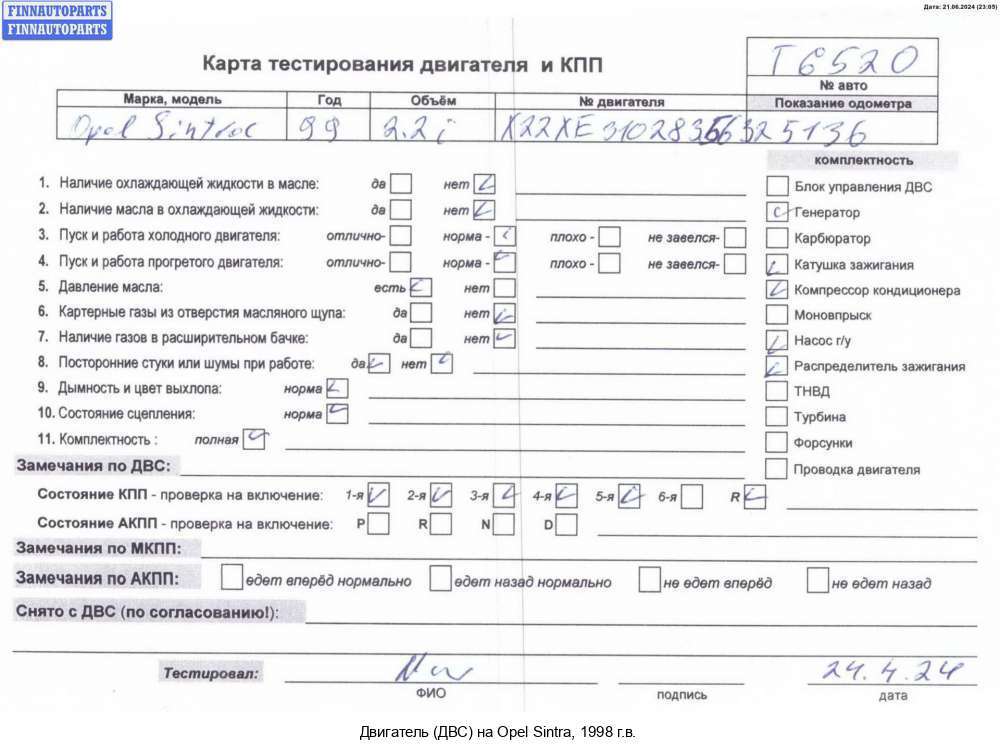 FINNAUTOPARTS
FINNAUTOPARTS
Дата: 21.06.2024 (23:05)
Карта тестирования двигателя и КПП
T6520
№ авто
Марка, модель Год Объём № двигателя Показание одометра
Opel Sintra 99 2.2i X22XE 325136
комплектность
1. Наличие охлаждающей жидкости в масле: да нет
Блок управления ДВС
2. Наличие масла в охлаждающей жидкости: да нет
Генератор
3. Пуск и работа холодного двигателя: отлично- норма - плохо - не завелся-
Карбюратор
4. Пуск и работа прогретого двигателя: отлично- норма - плохо - не завелся-
Катушка зажигания
5. Давление масла: есть нет
Компрессор кондиционера
6. Картерные газы из отверстия масляного щупа: да нет
Моновпрыск
7. Наличие газов в расширительном бачке: да нет
Насос г/у
8. Посторонние стуки или шумы при работе: да нет
Распределитель зажигания
9. Дымность и цвет выхлопа: норма
ТНВД
10. Состояние сцепления: норма
Турбина
11. Комплектность : полная
Форсунки
Замечания по ДВС:
Проводка двигателя
Состояние КПП - проверка на включение: 1-я 2-я 3-я 4-я 5-я 6-я R
Состояние АКПП - проверка на включение: P R N D
Замечания по МКПП:
Замечания по АКПП: едет вперёд нормально едет назад нормально не едет вперёд не едет назад
Снято с ДВС (по согласованию!):
Тестировал: 24.4.24
ФИО подпись дата
Двигатель (ДВС) на Opel Sintra, 1998 г.в.